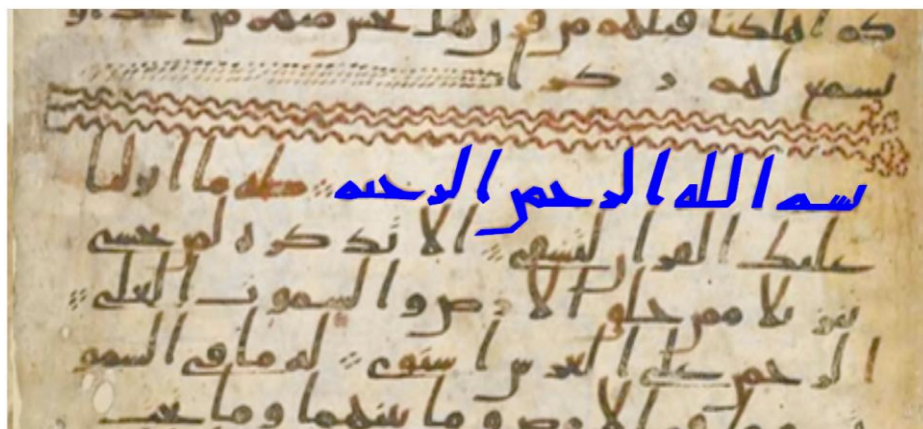 كم اهلكنا قبلهم من قرن هل تحس منهم من احد او
تسمع لهم ركزا
بسم الله الرحمن الرحيم طه ما انزلنا
عليك القران لتشقى الا تذكرة لمن يخشى
تنزيلا ممن خلق الارض والسموت العلى
الرحمن على العرش استوى له ما فى السمو
ت وما فى الارض وما بينهما وما تحت